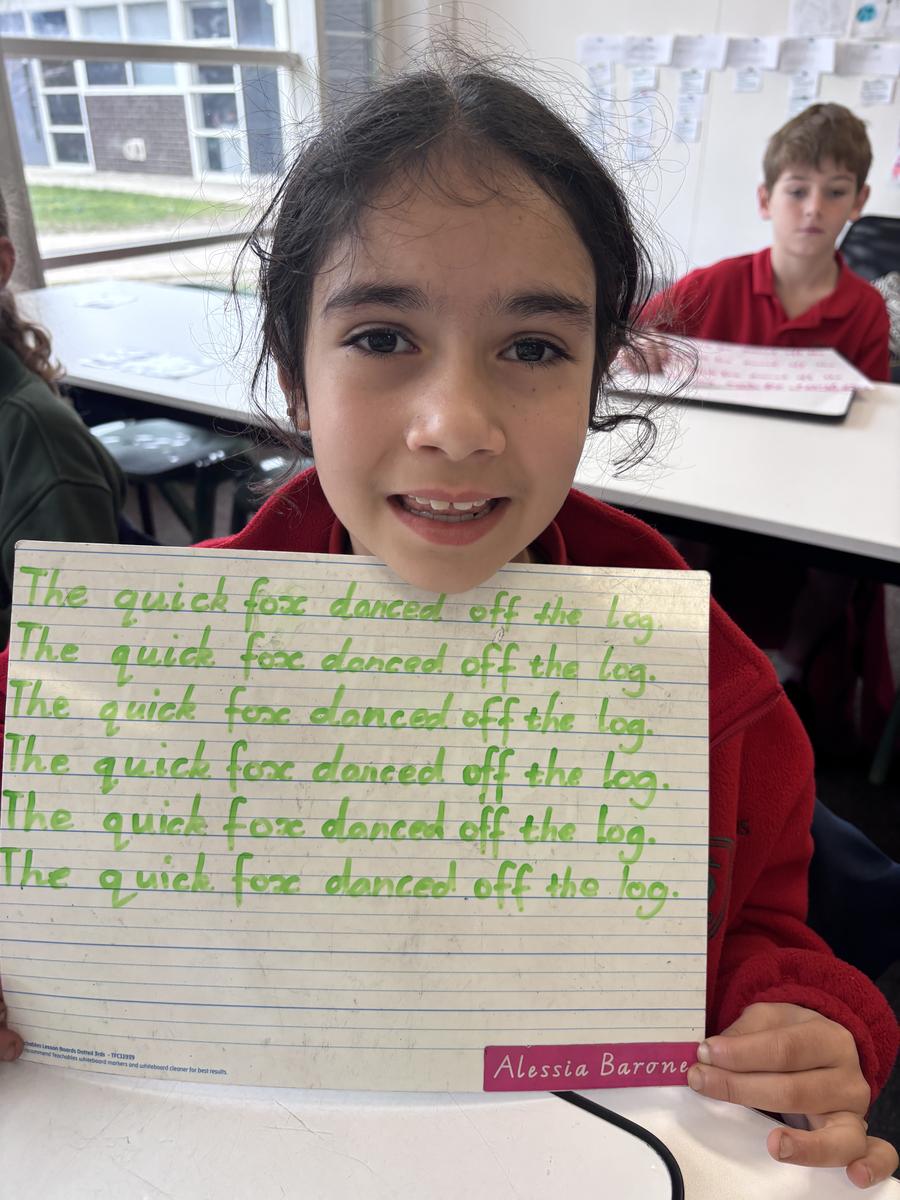 The quick fox danced off the log.
The quick fox danced off the log.
The quick fox danced off the log.
The quick fox danced off the log.
The quick fox danced off the log.
The quick fox danced off the log.
Lesson Boards Dotted 3rds - TFC11939
recommend Teachables whiteboard markers and whiteboard cleaner for best results.
Alessia Barone